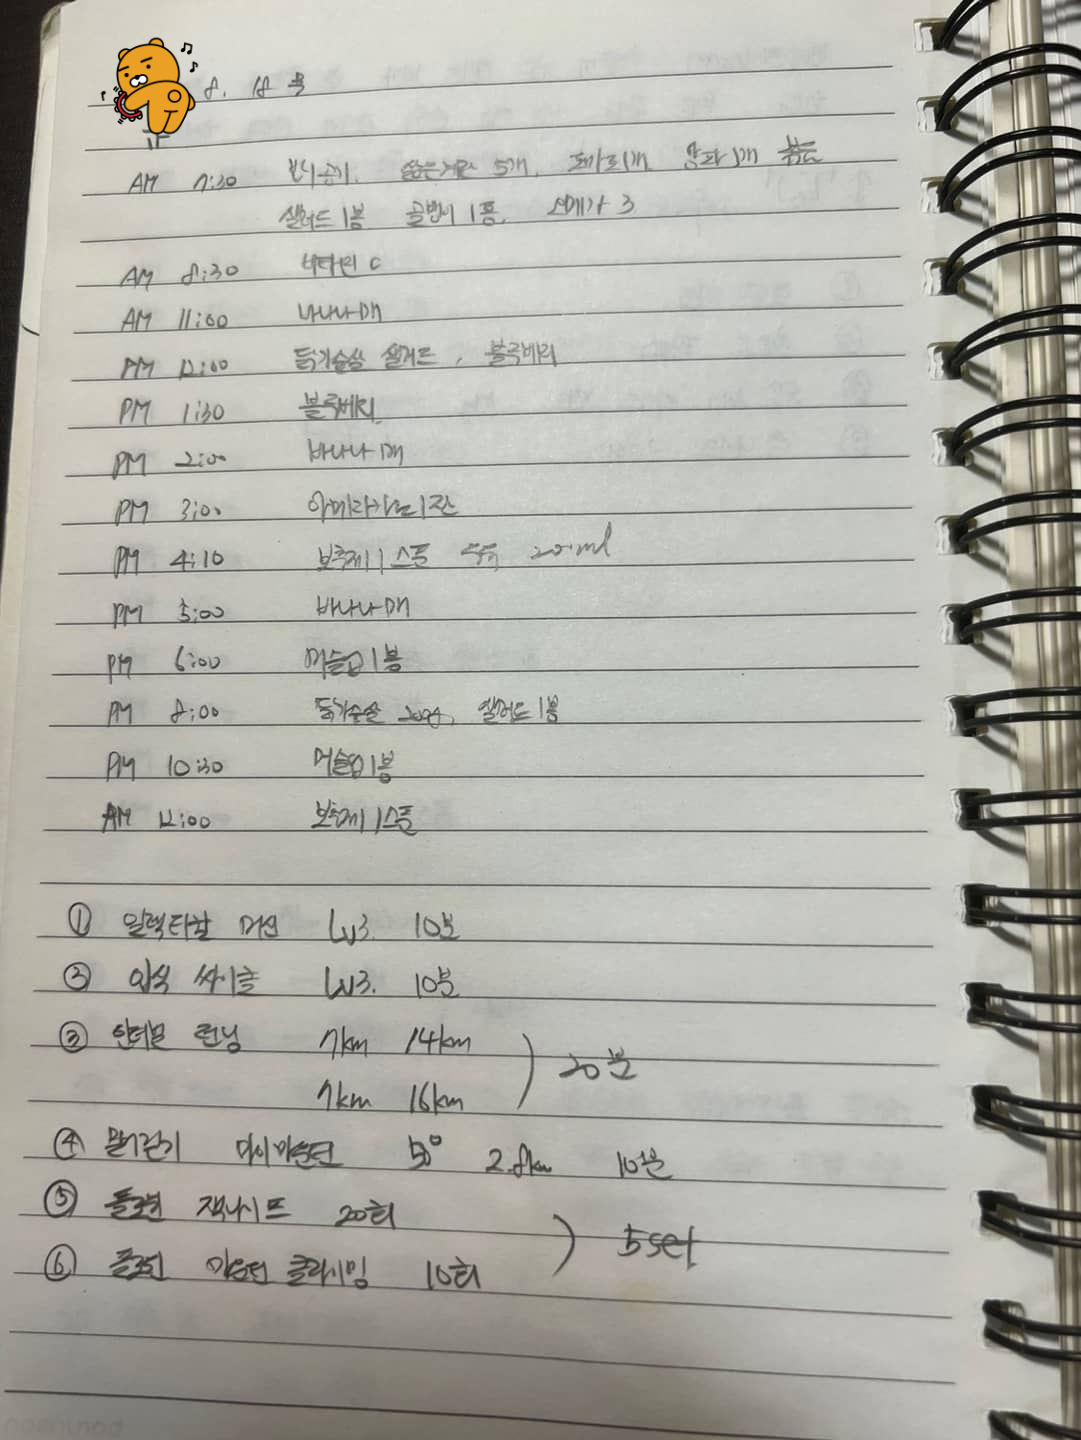 8. 18 목
AM 7:30 삶은계란 5개, 토마토1개, 양파1개
샐러드 1봉 골뱅이 1통, 오메가 3
AM 8:30 비타민 C
AM 11:00 바나나
PM 12:00 닭가슴살 샐러드, 블루베리
PM 1:30 블루베리
PM 2:00 바나나
PM 3:00 아메리카노 1잔
PM 4:10 보충제 1스푼 우유 200ml
PM 5:00 바나나
PM 6:00 머슬업 1봉
PM 8:00 닭가슴살 200g, 샐러드 1봉
PM 10:30 머슬업 1봉
AM 12:00 보충제 1스푼
① 일렉티컬 머신 Lv3. 10분
② 입식 싸이클 Lv3. 10분
③ 인터벌 런닝 7km 14km
7km 16km ) 20분
④ 마이마운틴 50° 2.8km 10분
⑤ 플로어 잭나이프 20회
⑥ 플로어 마운틴 클라이밍 10회 ) 5set